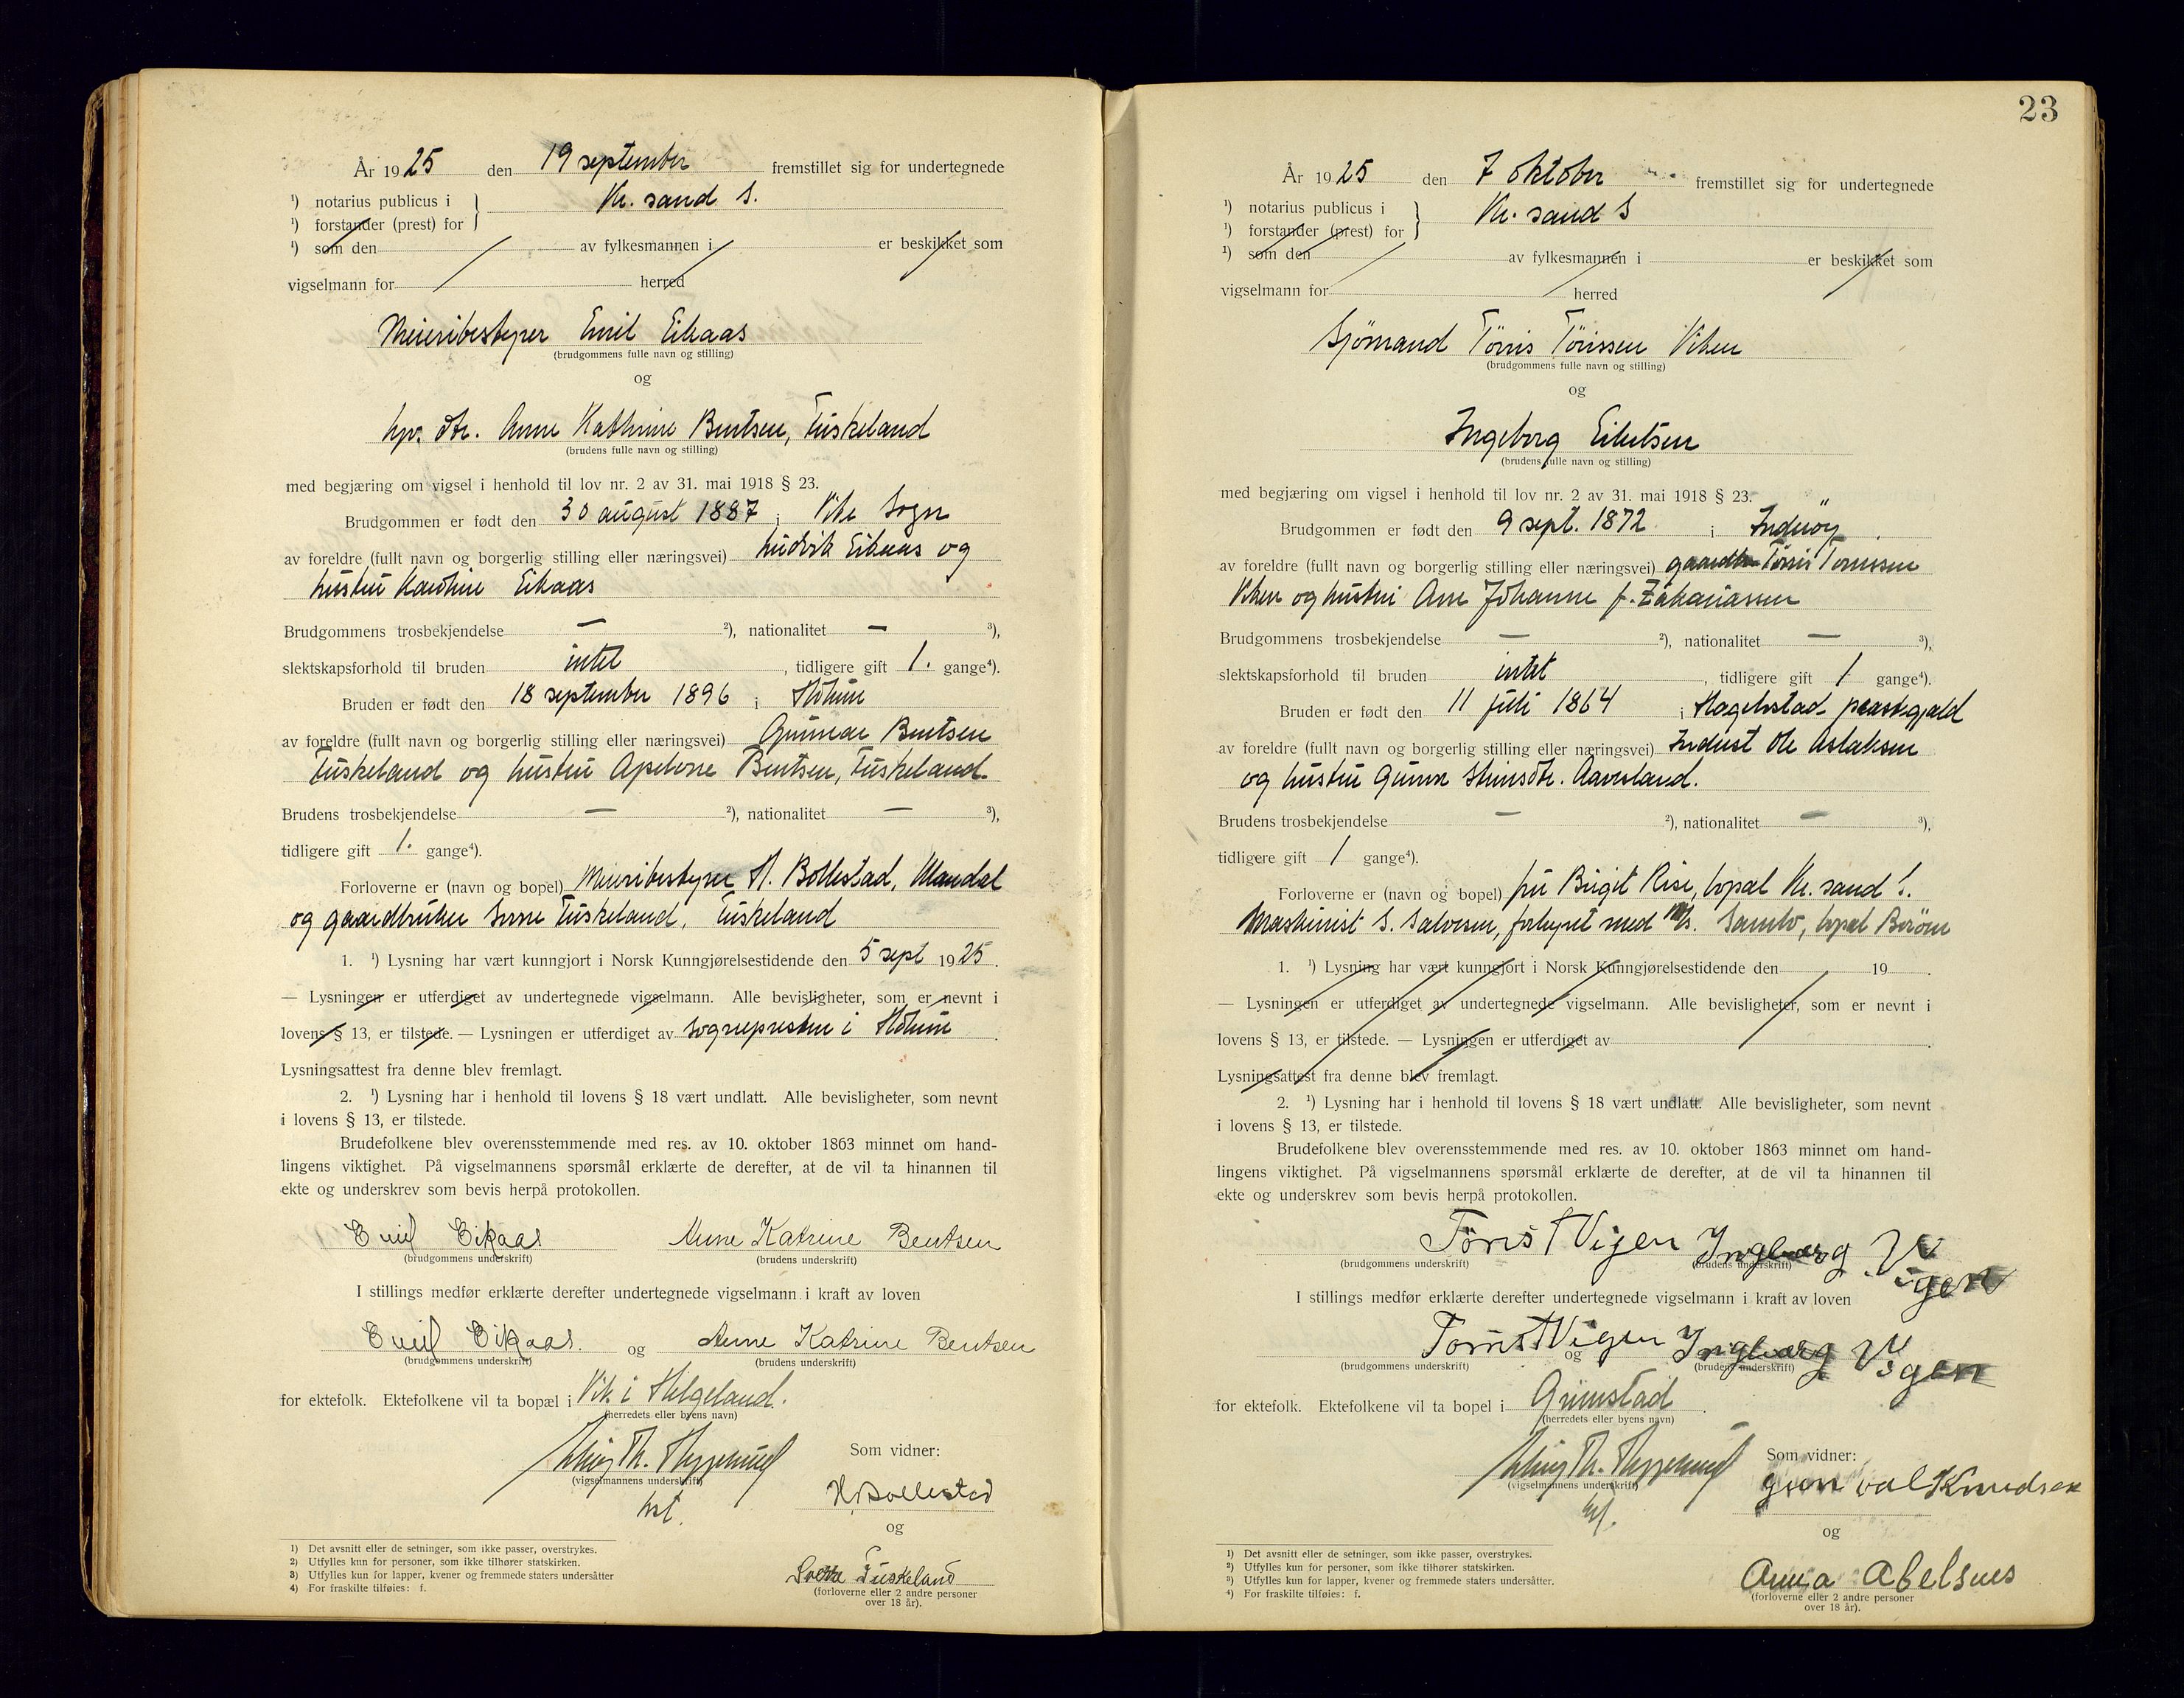 År 1925 den 19 september fremstillet sig for undertegnede
¹) notarius publicus i
Kr. sand S.
¹) forstander (prest) for
¹) som den av fylkesmannen i er beskikket som
vigselmann for herred
Meieribestyrer Emil Eikaas
(brudgommens fulle navn og stilling)
og
hpr. dtr. Anne Kathrine Bentsen, Tuskeland
(brudens fulle navn og stilling)
med begjæring om vigsel i henhold til lov nr. 2 av 31. mai 1918 § 23.
Brudgommen er født den 30 august 1887 i Vik Sogn
av foreldre (fullt navn og borgerlig stilling eller næringsvei) Ludvik Eikaas og
hustru Kathrine Eikaas
Brudgommens trosbekjendelse — ²), nationalitet — ³),
slektskapsforhold til bruden intet, tidligere gift 1. gange⁴).
Bruden er født den 18 september 1896 i Holum
av foreldre (fullt navn og borgerlig stilling eller næringsvei) Gunnar Bentsen
Tuskeland og hustru Apelone Bentsen, Tuskeland.
Brudens trosbekjendelse — ²), nationalitet — ³),
tidligere gift 1. gange⁴).
Forloverne er (navn og bopel) Meieribestyrer H. Bollestad, Mandal
og gaardbruker Tuskeland, Tuskeland
1. ¹) Lysning har vært kunngjort i Norsk Kunngjørelsestidende den 5 sept 1925.
— Lysningen er utferdiget av undertegnede vigselmann. Alle bevisligheter, som er nevnt i
lovens § 13, er tilstede. — Lysningen er utferdiget av Sognepresten i Holum.
Lysningsattest fra denne blev fremlagt.
2. ¹) Lysning har i henhold til lovens § 18 vært undlatt. Alle bevisligheter, som nevnt
i lovens § 13, er tilstede.
Brudefolkene blev overensstemmende med res. av 10. oktober 1863 minnet om hand-
lingens viktighet. På vigselmannens spørsmål erklærte de derefter, at de vil ta hinannen til
ekte og underskrev som bevis herpå protokollen.
Emil Eikaas Anne Katrine Bentsen
(brudgommens underskrift) (brudens underskrift)
I stillings medfør erklærte derefter undertegnede vigselmann i kraft av loven
Emil Eikaas. og Anne Katrine Bentsen
(brudgommens underskrift) (brudens underskrift)
for ektefolk. Ektefolkene vil ta bopæl i Vik i Helgeland.
(herredets eller byens navn)
Th.
Som vidner:
(vigselmannens underskrift)
H. Bollestad
og
Tuskeland
(forloverne eller 2 andre personer
over 18 år).
1) Det avsnitt eller de setninger, som ikke passer, overstrykes.
2) Utfylles kun for personer, som ikke tilhører statskirken.
3) Utfylles kun for lapper, kvener og fremmede staters undersåtter
4) For fraskilte tilføies: f.
23
År 1925 den 7 oktober fremstillet sig for undertegnede
¹) notarius publicus i
Kr. sand S
¹) forstander (prest) for
¹) som den av fylkesmannen i er beskikket som
vigselmann for herred
Sjömand Törris Törrissen Viken
(brudgommens fulle navn og stilling)
og
Ingeborg Eilertsen
(brudens fulle navn og stilling)
med begjæring om vigsel i henhold til lov nr. 2 av 31. mai 1918 § 23.
Brudgommen er født den 9 sept. 1872 i Inderöy.
av foreldre (fullt navn og borgerlig stilling eller næringsvei) gaardbr Törris Törrissen
Viken og hustru Ane Johanne f. Zakariassen
Brudgommens trosbekjendelse — ²), nationalitet — ³),
slektskapsforhold til bruden intet, tidligere gift 1 gange⁴).
Bruden er født den 11 juli 1864 i Hægebostad prestegjæld
av foreldre (fullt navn og borgerlig stilling eller næringsvei) Indust Ole Aslaksen
og hustru Gunne Aavesland.
Brudens trosbekjendelse — ²), nationalitet — ³),
tidligere gift 1 gange⁴).
Forloverne er (navn og bopel) fru Birgit Rise, bopæl Kr. sand S.
Maskinist S. Salvesen, forhyret med M/s. Samlo, bopæl
1. ¹) Lysning har vært kunngjort i Norsk Kunngjørelsestidende den 19 .
— Lysningen er utferdiget av undertegnede vigselmann. Alle bevisligheter, som er nevnt i
lovens § 13, er tilstede. — Lysningen er utferdiget av .
Lysningsattest fra denne blev fremlagt.
2. ¹) Lysning har i henhold til lovens § 18 vært undlatt. Alle bevisligheter, som nevnt
i lovens § 13, er tilstede.
Brudefolkene blev overensstemmende med res. av 10. oktober 1863 minnet om hand-
lingens viktighet. På vigselmannens spørsmål erklærte de derefter, at de vil ta hinannen til
ekte og underskrev som bevis herpå protokollen.
Törris T Vigen Ingeborg Vigen
(brudgommens underskrift) (brudens underskrift)
I stillings medfør erklærte derefter undertegnede vigselmann i kraft av loven
Törris T Vigen og Ingeborg Vigen
(brudgommens underskrift) (brudens underskrift)
for ektefolk. Ektefolkene vil ta bopel i Grimstad.
(herredets eller byens navn)
Th.
Som vidner:
(vigselmannens underskrift)
Gunval Knudsen
og
Anna Abelsnes
(forloverne eller 2 andre personer
over 18 år).
¹) Det avsnitt eller de setninger, som ikke passer, overstrykes.
²) Utfylles kun for personer, som ikke tilhører statskirken.
³) Utfylles kun for lapper, kvener og fremmede staters undersåtter.
⁴) For fraskilte tilføies: f.